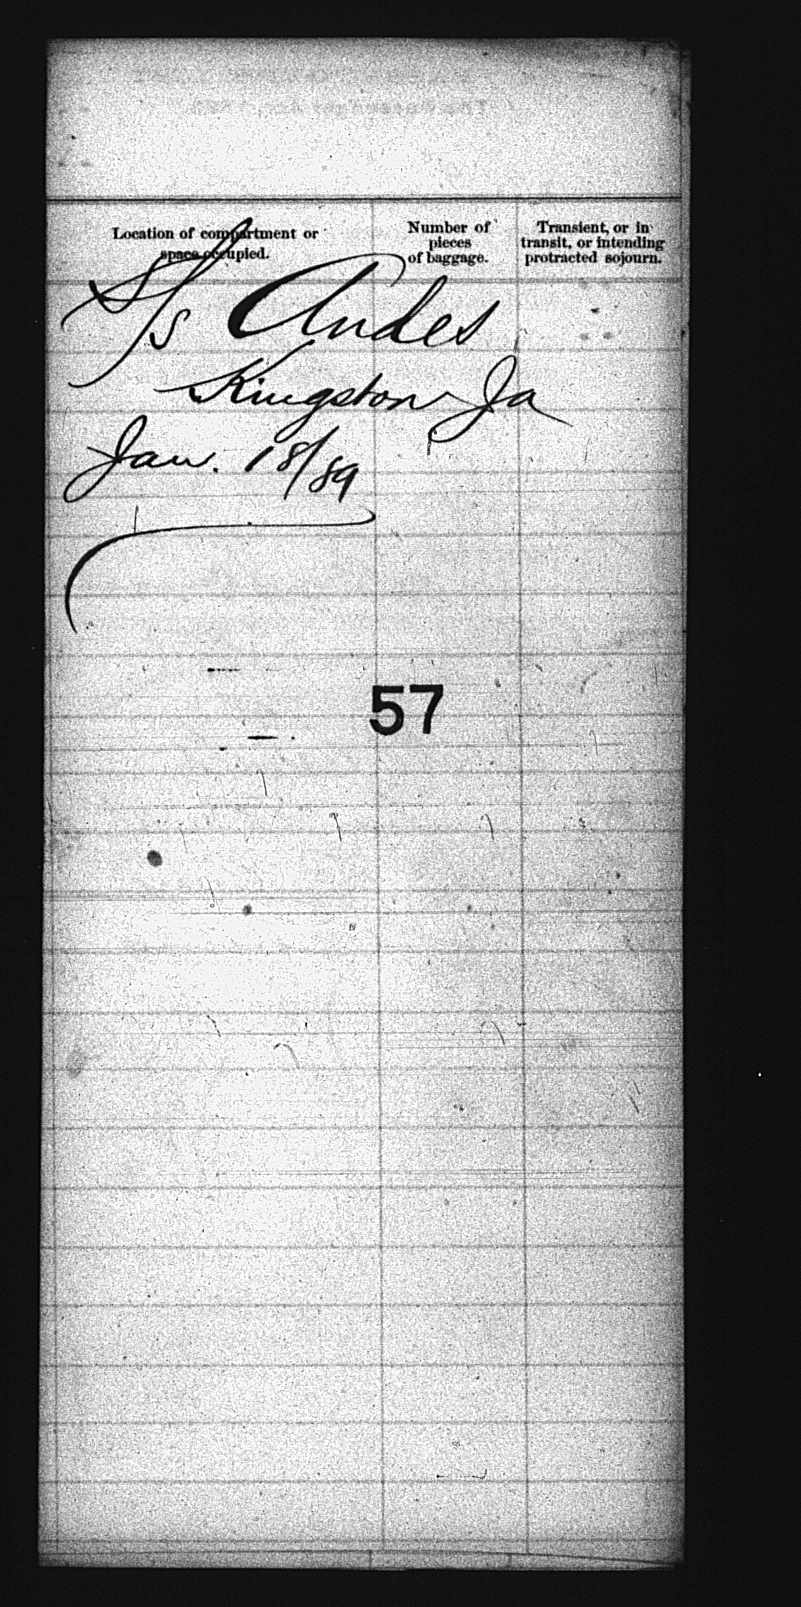 Location of compartment or
space occupied.
Number of
pieces
of baggage.
Transient, or in
transit, or intending
protracted sojourn.
S/s Andes
Kingston Ja
Jan. 18/89
57